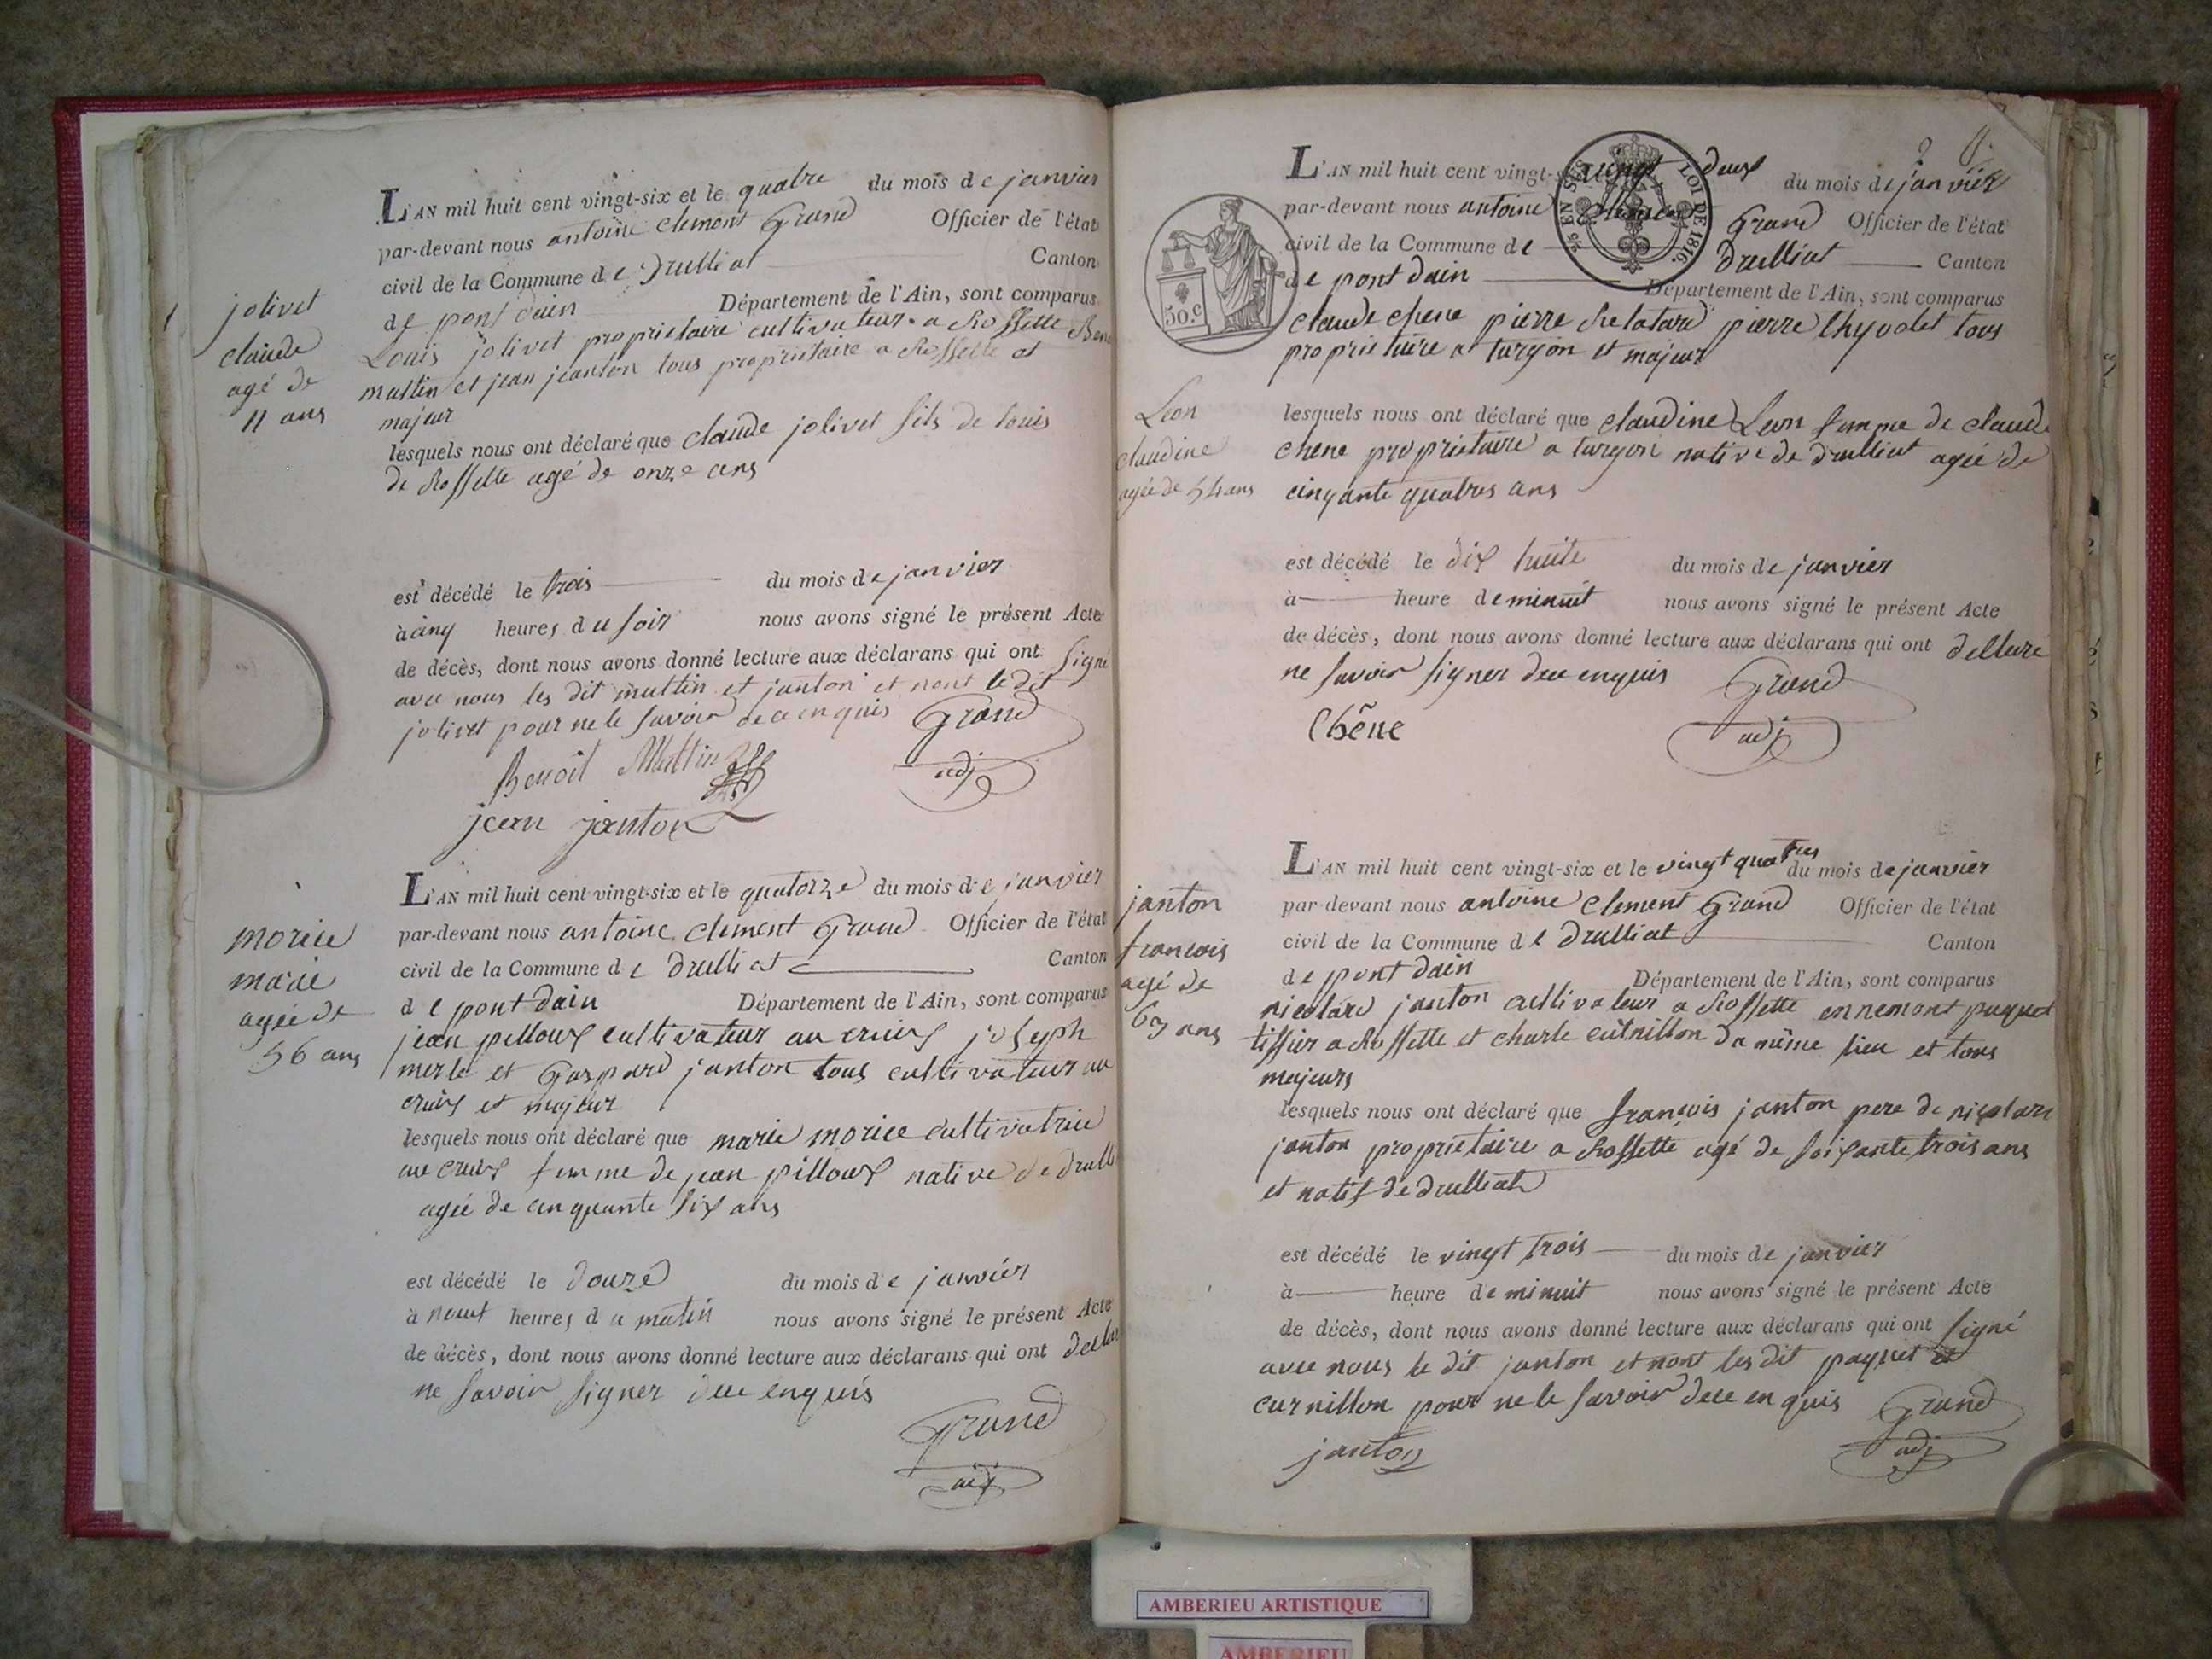 jolivet
claude
agé de
11 ans
L'AN mil huit cent vingt-six et le quatre du mois de janvier
par-devant nous antoine clement Grand Officier de l'état
civil de la Commune de Drulliat Canton
de pont dain Département de l'Ain, sont comparus
Louis jolivet proprietaire cultivateur a Rossette
mattin et jean jeanton tous proprietaire a Rossette et
majeur
lesquels nous ont déclaré que claude jolivet fils de louis
de Rossette agé de onze ans
est décédé le trois du mois de janvier
à cinq heures du soir nous avons signé le présent Acte
de décès, dont nous avons donné lecture aux déclarans qui ont signé
avec nous les dit mattin et janton et nont le dit
jolivet pour ne le savoir de ce enquis Grand
Benoit Mattin adj
jean janton
morice
marie
agée de
56 ans
L'AN mil huit cent vingt-six et le quatorze du mois de janvier
par-devant nous antoine clement Grand Officier de l'état
civil de la Commune de Drulliat Canton
de pont dain Département de l'Ain, sont comparus
jean pilloux cultivateur au cruix joseph
merle et Gaspard janton tous cultivateur au
cruix et majeur
lesquels nous ont déclaré que marie morice cultivatrice
au cruix femme de jean pilloux native de drull
agée de cinquante six ans
est décédé le douze du mois de janvier
à neuf heures du matin nous avons signé le présent Acte
de décès, dont nous avons donné lecture aux déclarans qui ont
ne savoir signer dece enquis
Grand
adj
L'AN mil huit cent vingt-s vingt deux du mois de janvier
par-devant nous antoine clement Grand Officier de l'état
civil de la Commune de Drulliat Canton
de pont dain Département de l'Ain, sont comparus
LOI DE 1816.
EN SUS
50.c
claude chene pierre pierre thyvolet tous
proprietaire a turgon et majeur
Leon
claudine
agée de 54 ans
lesquels nous ont déclaré que claudine Leon femme de claude
chene proprietaire a turgon native de drulliat agée de
cinqante quatres ans
est décédé le dix huite du mois de janvier
à heure de minuit nous avons signé le présent Acte
de décès, dont nous avons donné lecture aux déclarans qui ont dellere
ne savoir signer dece enquis Grand
Chêne adj
janton
francois
agé de
63 ans
L'AN mil huit cent vingt-six et le vingt quatres du mois de janvier
par-devant nous antoine clement Grand Officier de l'état
civil de la Commune de Drulliat Canton
de pont dain Département de l'Ain, sont comparus
nicolard janton cultivateur a Rossette ennemont paquet
tissier a Rossette et charle curnillon du même lieu et tous
majeurs
lesquels nous ont déclaré que françois janton pere de niçolard
janton proprietaire a Rossette agé de soixante trois ans
et natif de drulliat
est décédé le vingt trois du mois de janvier
à heure de minuit nous avons signé le présent Acte
de décès, dont nous avons donné lecture aux déclarans qui ont signé
avec nous le dit janton et nont les dit paquet et
curnillon pour ne le savoir dece enquis Grand
janton adj
AMBERIEU ARTISTIQUE
AMBERIEU